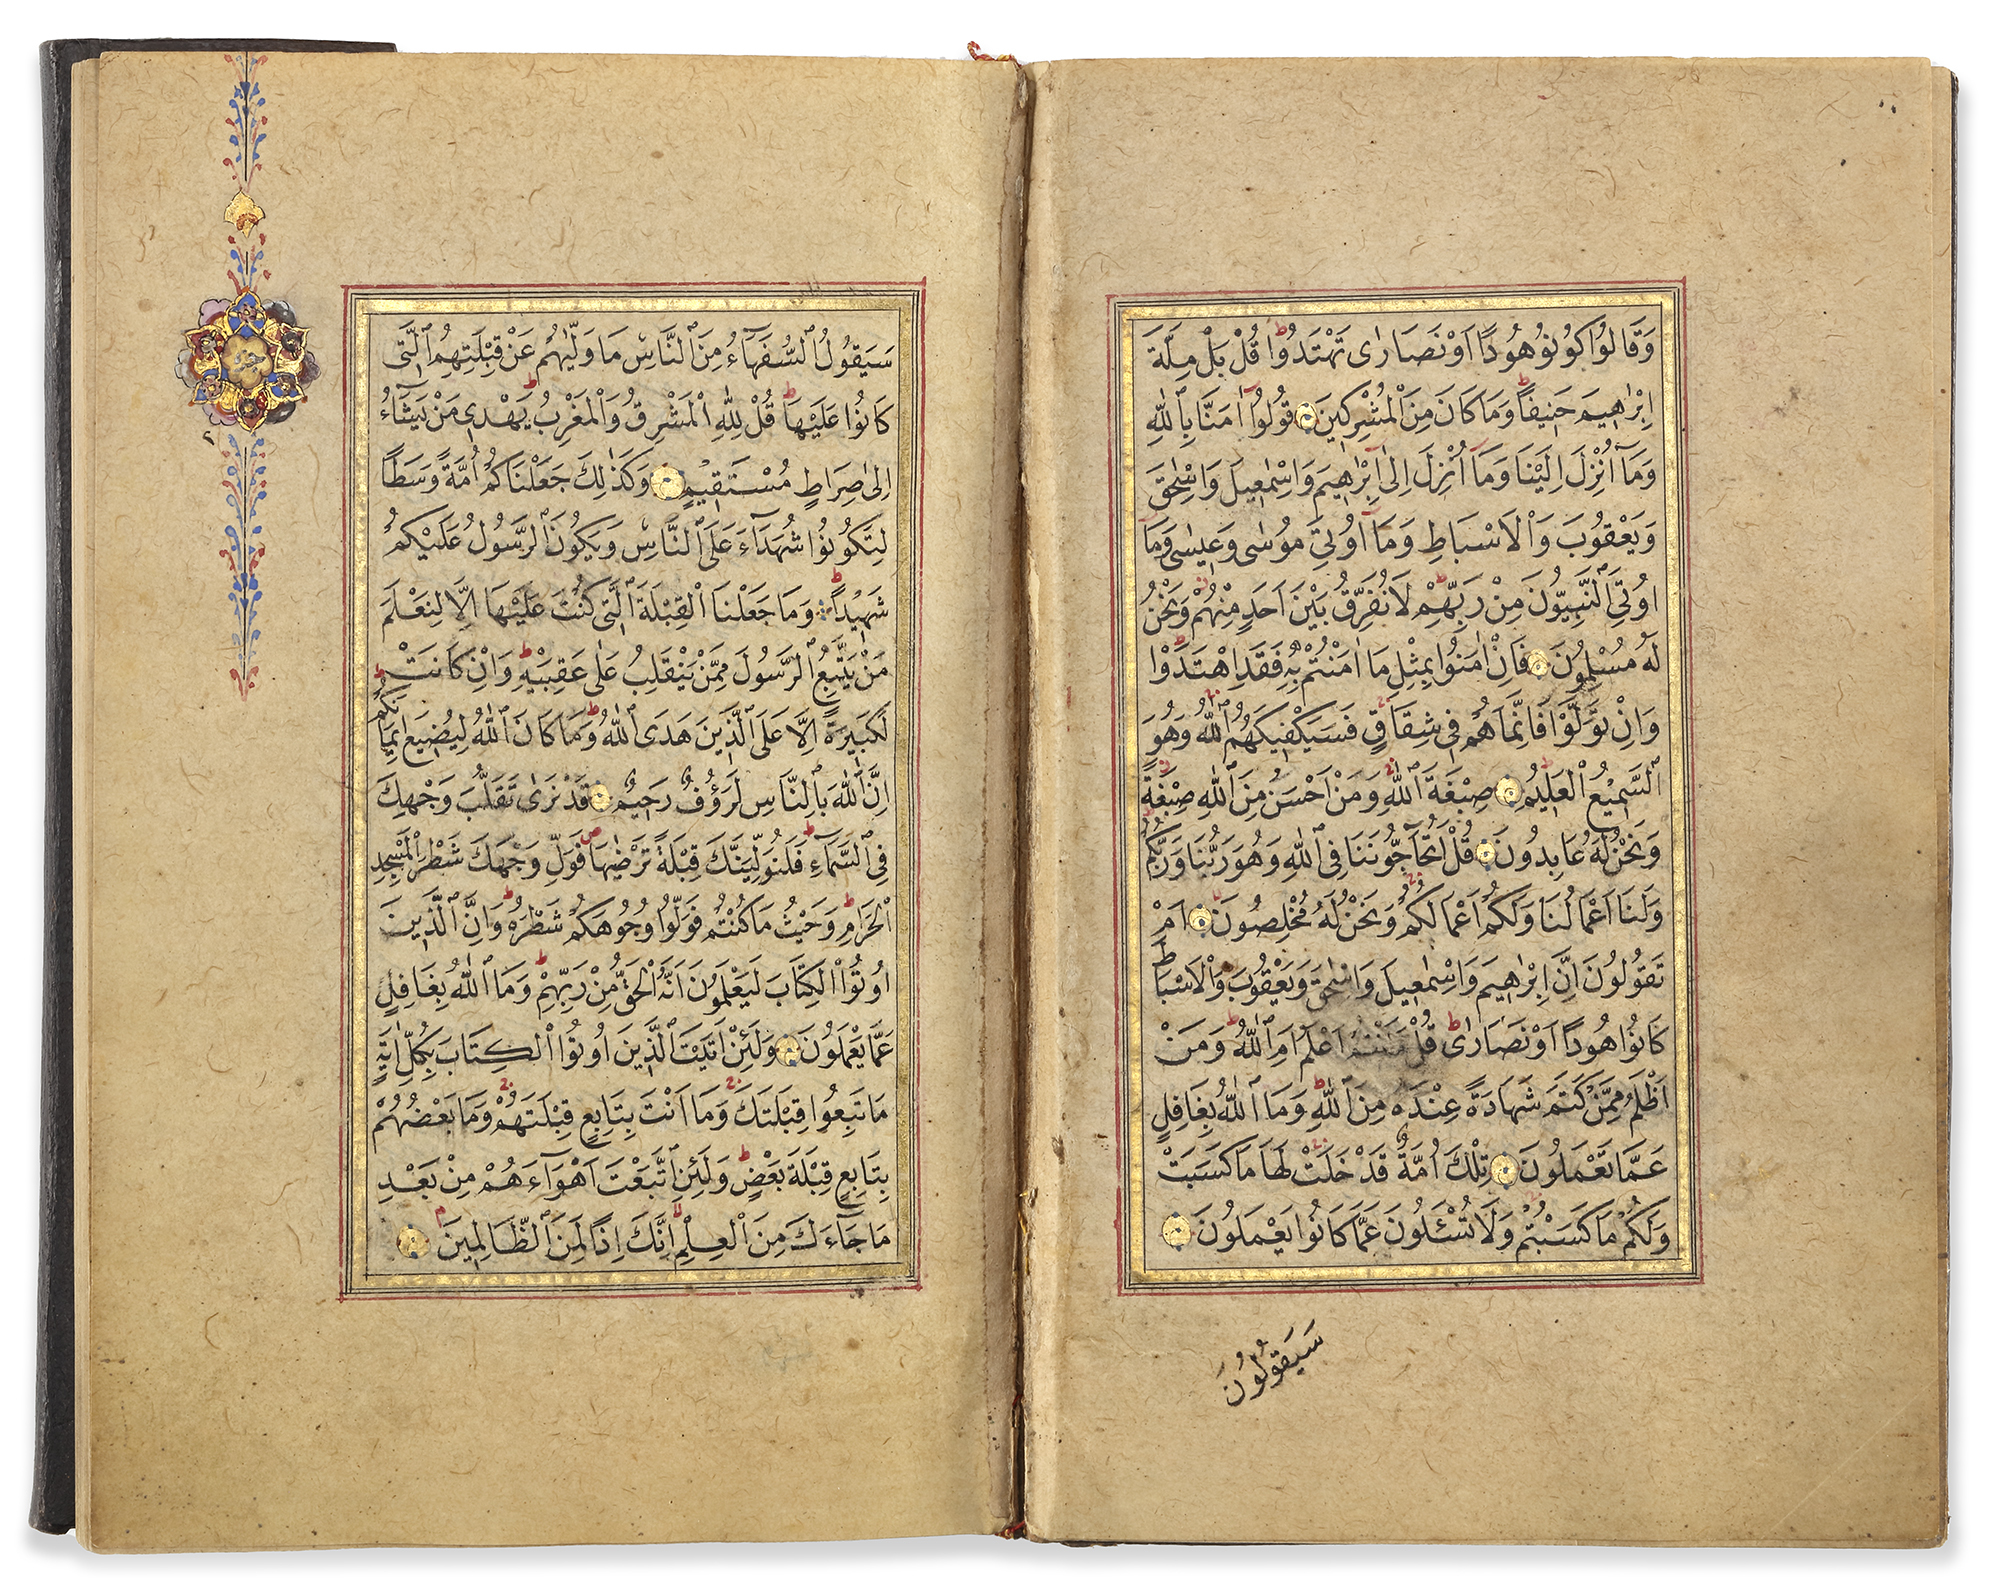 وَقَالُوا كُونُوا هُودًا اَوْ نَصَارٰى تَهْتَدُوا قُلْ بَلْ مِلَّةَ
اِبْرٰهِيمَ حَنِيفًا وَمَا كَانَ مِنَ الْمُشْرِكِينَ قُولُوا اٰمَنَّا بِاللّٰهِ
وَمَآ اُنْزِلَ اِلَيْنَا وَمَآ اُنْزِلَ اِلٰى اِبْرٰهِيمَ وَاِسْمٰعِيلَ وَاِسْحٰقَ
وَيَعْقُوبَ وَالْاَسْبَاطِ وَمَآ اُوتِيَ مُوسٰى وَعِيسٰى وَمَآ
اُوتِيَ النَّبِيُّونَ مِنْ رَبِّهِمْ لَا نُفَرِّقُ بَيْنَ اَحَدٍ مِنْهُمْ وَنَحْنُ
لَهُ مُسْلِمُونَ فَاِنْ اٰمَنُوا بِمِثْلِ مَا اٰمَنْتُمْ بِهِ فَقَدِ اهْتَدَوْا
وَاِنْ تَوَلَّوْا فَاِنَّمَا هُمْ فِي شِقَاقٍ فَسَيَكْفِيكَهُمُ اللّٰهُ وَهُوَ
السَّمِيعُ الْعَلِيمُ صِبْغَةَ اللّٰهِ وَمَنْ اَحْسَنُ مِنَ اللّٰهِ صِبْغَةً
وَنَحْنُ لَهُ عَابِدُونَ قُلْ اَتُحَآجُّونَنَا فِي اللّٰهِ وَهُوَ رَبُّنَا وَرَبُّكُمْ
وَلَنَا اَعْمَالُنَا وَلَكُمْ اَعْمَالُكُمْ وَنَحْنُ لَهُ مُخْلِصُونَ اَمْ
تَقُولُونَ اِنَّ اِبْرٰهِيمَ وَاِسْمٰعِيلَ وَاِسْحٰقَ وَيَعْقُوبَ وَالْاَسْبَاطَ
كَانُوا هُودًا اَوْ نَصَارٰى قُلْ ءَاَنْتُمْ اَعْلَمُ اَمِ اللّٰهُ وَمَنْ
اَظْلَمُ مِمَّنْ كَتَمَ شَهَادَةً عِنْدَهُ مِنَ اللّٰهِ وَمَا اللّٰهُ بِغَافِلٍ
عَمَّا تَعْمَلُونَ تِلْكَ اُمَّةٌ قَدْ خَلَتْ لَهَا مَا كَسَبَتْ
وَلَكُمْ مَا كَسَبْتُمْ وَلَا تُسْـَٔلُونَ عَمَّا كَانُوا يَعْمَلُونَ
سَيَقُولُونَ
سَيَقُولُ السُّفَهَآءُ مِنَ النَّاسِ مَا وَلّٰيهُمْ عَنْ قِبْلَتِهِمُ الَّتِي
كَانُوا عَلَيْهَا قُلْ لِلّٰهِ الْمَشْرِقُ وَالْمَغْرِبُ يَهْدِي مَنْ يَشَآءُ
اِلٰى صِرَاطٍ مُسْتَقِيمٍ وَكَذٰلِكَ جَعَلْنَاكُمْ اُمَّةً وَسَطًا
لِتَكُونُوا شُهَدَآءَ عَلَى النَّاسِ وَيَكُونَ الرَّسُولُ عَلَيْكُمْ
شَهِيدًا وَمَا جَعَلْنَا الْقِبْلَةَ الَّتِي كُنْتَ عَلَيْهَا اِلَّا لِنَعْلَمَ
مَنْ يَتَّبِعُ الرَّسُولَ مِمَّنْ يَنْقَلِبُ عَلٰى عَقِبَيْهِ وَاِنْ كَانَتْ
لَكَبِيرَةً اِلَّا عَلَى الَّذِينَ هَدَى اللّٰهُ وَمَا كَانَ اللّٰهُ لِيُضِيعَ اِيمَانَكُمْ
اِنَّ اللّٰهَ بِالنَّاسِ لَرَؤُفٌ رَحِيمٌ قَدْ نَرٰى تَقَلُّبَ وَجْهِكَ
فِي السَّمَآءِ فَلَنُوَلِّيَنَّكَ قِبْلَةً تَرْضٰيهَا فَوَلِّ وَجْهَكَ شَطْرَ الْمَسْجِدِ
الْحَرَامِ وَحَيْثُ مَا كُنْتُمْ فَوَلُّوا وُجُوهَكُمْ شَطْرَهُ وَاِنَّ الَّذِينَ
اُوتُوا الْكِتَابَ لَيَعْلَمُونَ اَنَّهُ الْحَقُّ مِنْ رَبِّهِمْ وَمَا اللّٰهُ بِغَافِلٍ
عَمَّا يَعْمَلُونَ وَلَئِنْ اَتَيْتَ الَّذِينَ اُوتُوا الْكِتَابَ بِكُلِّ اٰيَةٍ
مَا تَبِعُوا قِبْلَتَكَ وَمَا اَنْتَ بِتَابِعٍ قِبْلَتَهُمْ وَمَا بَعْضُهُمْ
بِتَابِعٍ قِبْلَةَ بَعْضٍ وَلَئِنِ اتَّبَعْتَ اَهْوَآءَهُمْ مِنْ بَعْدِ
مَا جَآءَكَ مِنَ الْعِلْمِ اِنَّكَ اِذًا لَمِنَ الظَّالِمِينَ